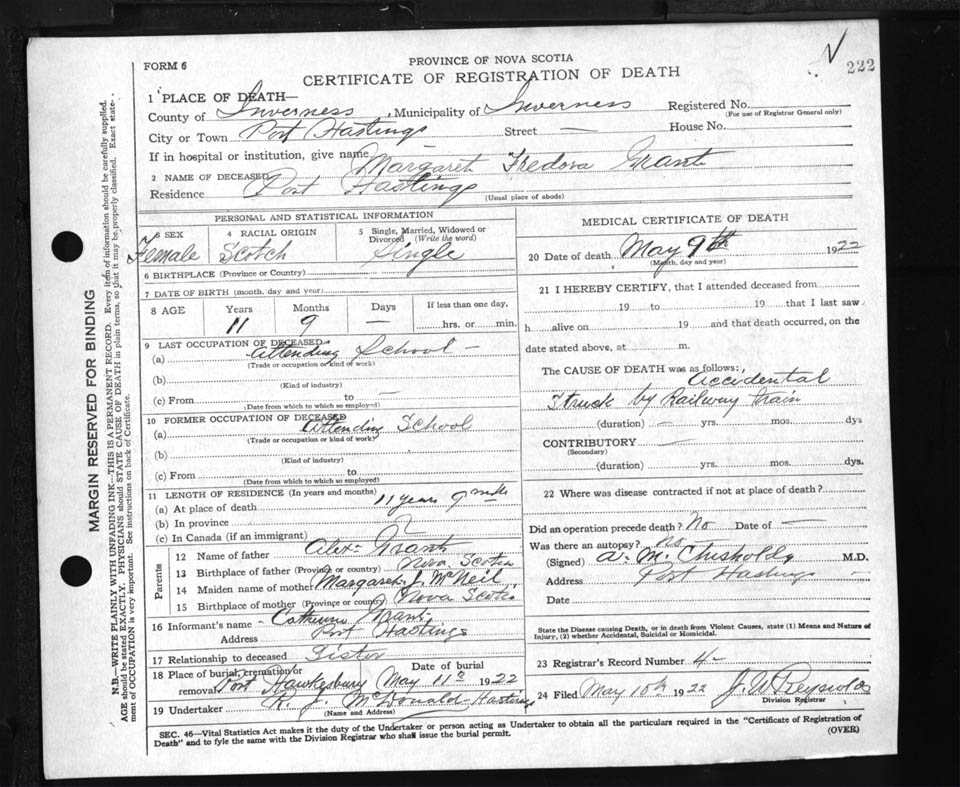 FORM 6
PROVINCE OF NOVA SCOTIA
CERTIFICATE OF REGISTRATION OF DEATH
222
1 PLACE OF DEATH—
County of Inverness, Municipality of Inverness Registered No.
(For use of Registrar General only)
City or Town Port Hastings Street — House No.
If in hospital or institution, give name
2 NAME OF DECEASED Margaret Fredora Grant
Residence Port Hastings
(Usual place of abode)
PERSONAL AND STATISTICAL INFORMATION
3 SEX Female
4 RACIAL ORIGIN Scotch
5 Single, Married, Widowed or Divorced (Write the word) Single
6 BIRTHPLACE (Province or Country)
7 DATE OF BIRTH (month, day and year)
8 AGE Years 11 Months 9 Days — If less than one day, hrs. or min.
9 LAST OCCUPATION OF DECEASED
(a) Attending School —
(Trade or occupation or kind of work)
(b)
(Kind of industry)
(c) From to —
(Date from which to which so employed)
10 FORMER OCCUPATION OF DECEASED
(a) Attending School
(Trade or occupation or kind of work)
(b)
(Kind of industry)
(c) From to
(Date from which to which so employed)
11 LENGTH OF RESIDENCE (In years and months)
(a) At place of death 11 years 9 mths
(b) In province
(c) In Canada (if an immigrant)
Parents
12 Name of father Alex Grant
13 Birthplace of father (Province or country) Nova Scotia
14 Maiden name of mother Margaret J. McNeil
15 Birthplace of mother (Province or country) Nova Scotia
16 Informant's name - Catherine Grant
Address Port Hastings
17 Relationship to deceased Sister
18 Place of burial, cremation or removal Port Hawkesbury Date of burial May 11th 1922
19 Undertaker R. J. McDonald Hastings
(Name and Address)
MEDICAL CERTIFICATE OF DEATH
20 Date of death May 9th 1922
(Month, day and year)
21 I HEREBY CERTIFY, that I attended deceased from
19 to 19 that I last saw
h alive on 19 and that death occurred, on the
date stated above, at m.
The CAUSE OF DEATH was as follows: Accidental
Struck by Railway train
(duration) — yrs. mos. dys
CONTRIBUTORY —
(Secondary)
(duration) yrs. mos. dys.
22 Where was disease contracted if not at place of death?
Did an operation precede death? No Date of —
Was there an autopsy? No
(Signed) A. M. Chisholm M.D.
Address Port Hastings
Date
State the Disease causing Death, or in death from Violent Causes, state (1) Means and Nature of
Injury, (2) whether Accidental, Suicidal or Homicidal.
23 Registrar's Record Number 4—
24 Filed May 10th 1922 J. W. Reynolds
Division Registrar
SEC. 46—Vital Statistics Act makes it the duty of the Undertaker or person acting as Undertaker to obtain all the particulars required in the "Certificate of Registration of
Death" and to fyle the same with the Division Registrar who shall issue the burial permit. (OVER)
MARGIN RESERVED FOR BINDING
N.B.—WRITE PLAINLY WITH UNFADING INK—THIS IS A PERMANENT RECORD. Every item of information should be carefully supplied.
AGE should be stated EXACTLY. PHYSICIANS should STATE CAUSE OF DEATH in plain terms, so that it may be properly classified. Exact state-
ment of OCCUPATION is very important. See instructions on back of Certificate.